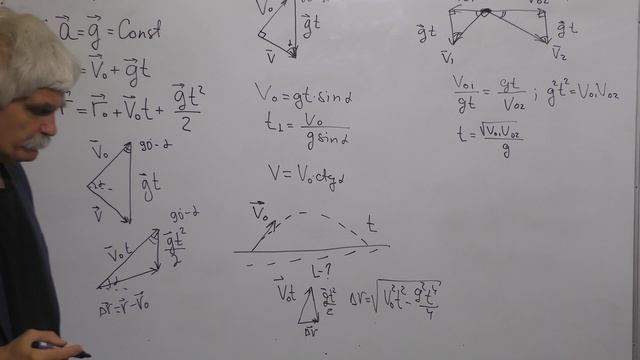 a⃗ = g⃗ = Const
V⃗₀ + g⃗t
= r⃗₀ + V⃗₀t + g⃗t²/2
V⃗₀ 90-α
g⃗t
V⃗
90-α
V⃗₀t g⃗t²/2
Δr⃗ = r⃗ - V⃗₀
V₀
g⃗t
V⃗
V₀ = gt·sinα
t₁ = V₀/(g sinα)
V = V₀·ctgα
V⃗₀ t
L-?
V⃗₀t g⃗t²/2 Δr = √(V₀²t² - g²t⁴/4)
Δr⃗
V₀₂
g⃗t g⃗t
V⃗₁ V⃗₂
V₀₁/gt = gt/V₀₂ ; g²t² = V₀₁V₀₂
t = √(V₀₁V₀₂)/g